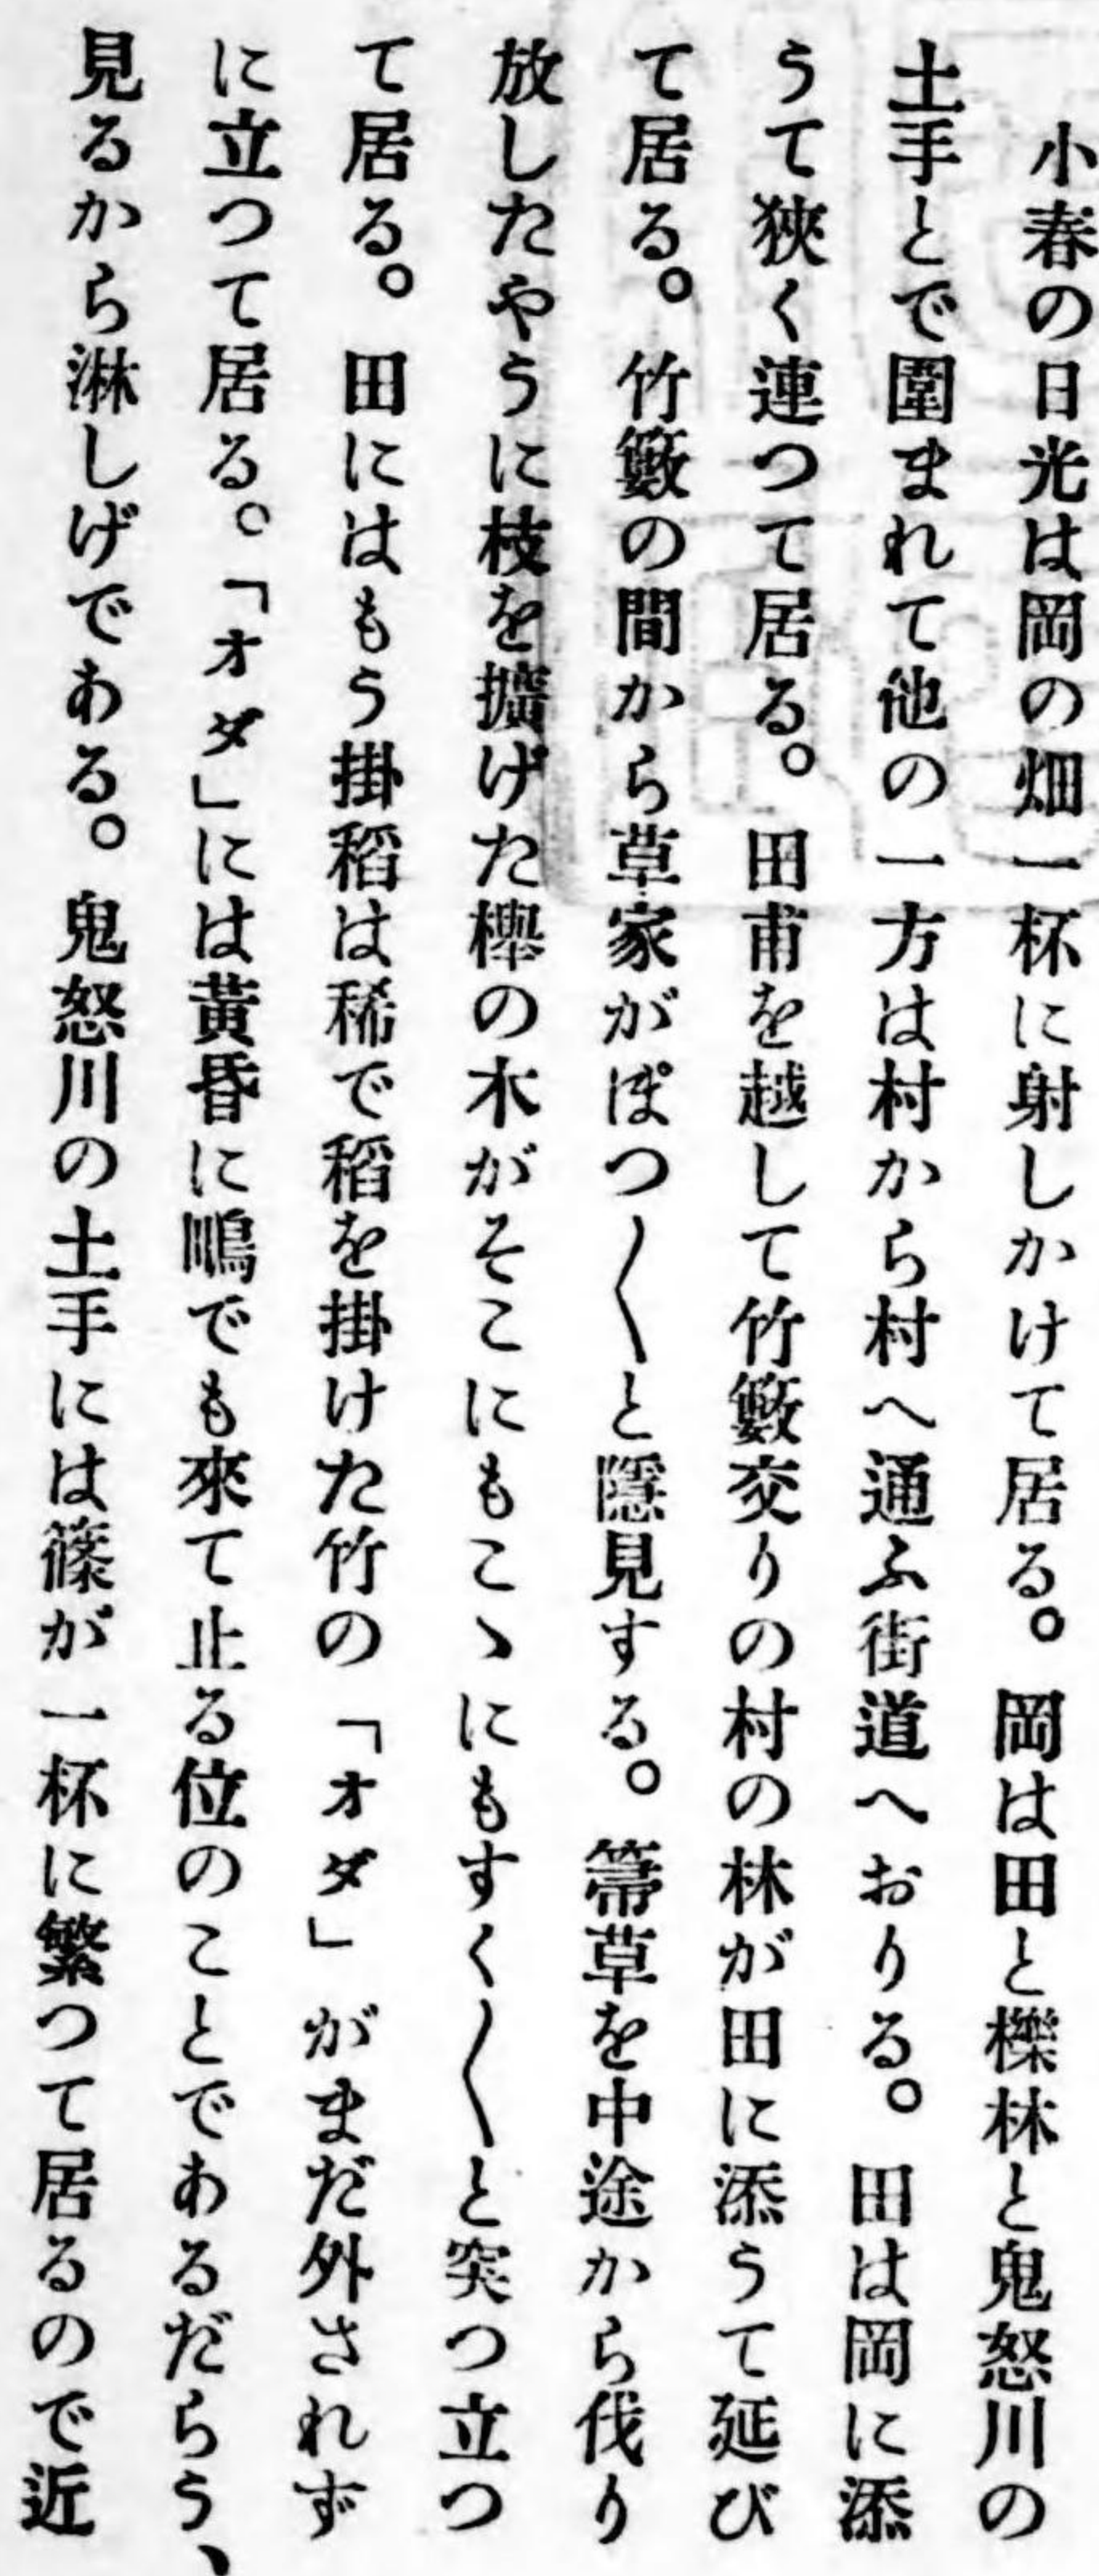 小春の日光は岡の畑一杯に射しかけて居る。岡は田と櫟林と鬼怒川の
土手とで圍まれて他の一方は村から村へ通ふ街道へおりる。田は岡に添
うて狹く連つて居る。田甫を越して竹籔交りの村の林が田に添うて延び
て居る。竹籔の間から草家がぽつ〱と隱見する。箒草を中途から伐り
放したやうに枝を擴げた欅の木がそこにもこゝにもすく〱と突つ立つ
て居る。田にはもう掛稻は稀で稻を掛けた竹の「オダ」がまだ外されず
に立つて居る。「オダ」には黃昏に鴫でも來て止る位のことであるだらう、
見るから淋しげである。鬼怒川の土手には篠が一杯に繁つて居るので近